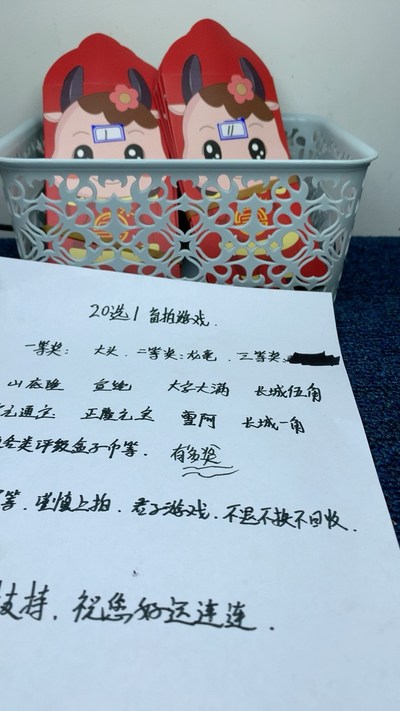 1
11
20选1盲拍游戏.
一等奖: 大头. 二等奖: 松竜. 三等奖:
宣统 大字大满 长城伍角
元通宝 正隆元宝 雪阿 长城一角
各类评级盒子币等. 有多奖
等. 谨慎上拍. 君子游戏. 不退不换不回收.
支持. 祝您好运连连.